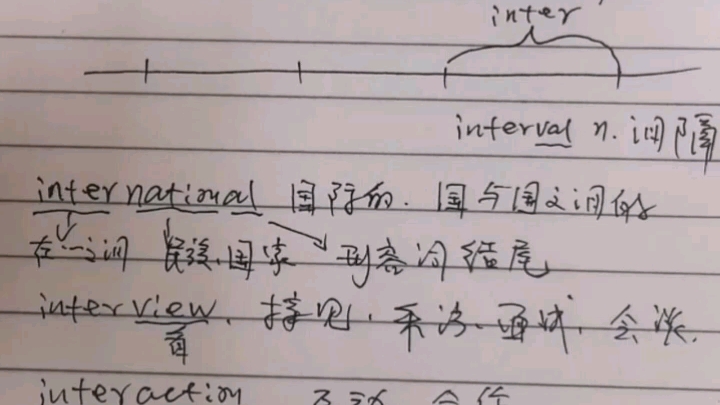 inter
interval n. 间隔
international 国际的. 国与国之间的
在…之间 民族,国家 形容词结尾
interview. 接见. 采访. 面试. 会谈.
interaction 互动 合作